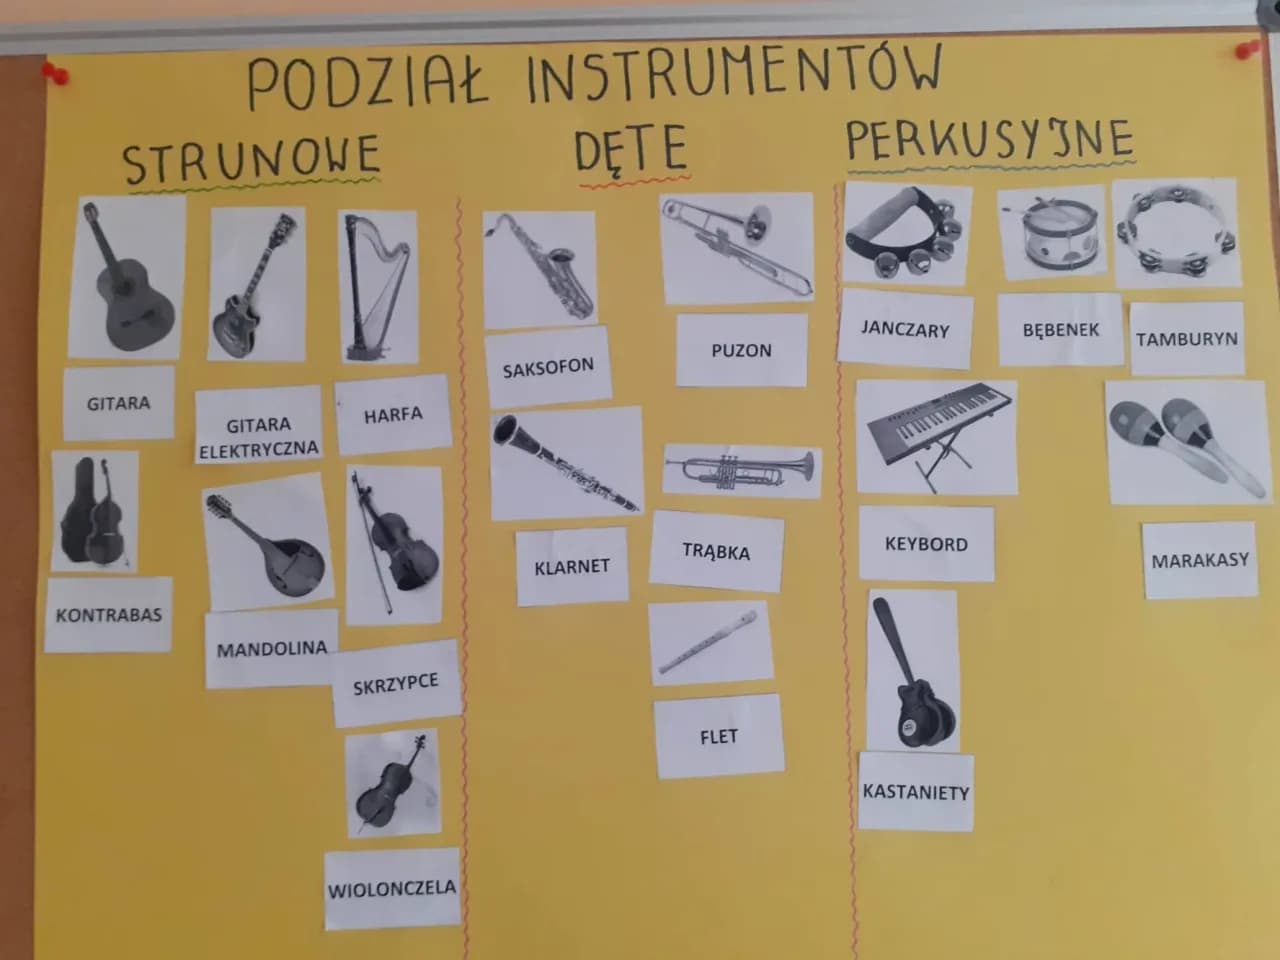 PODZIAŁ INSTRUMENTÓW
STRUNOWE
GITARA
GITARA
ELEKTRYCZNA
HARFA
KONTRABAS
MANDOLINA
SKRZYPCE
WIOLONCZELA
DĘTE
SAKSOFON
PUZON
KLARNET
TRĄBKA
FLET
PERKUSYJNE
JANCZARY
BĘBENEK
TAMBURYN
KEYBORD
MARAKASY
KASTANIETY